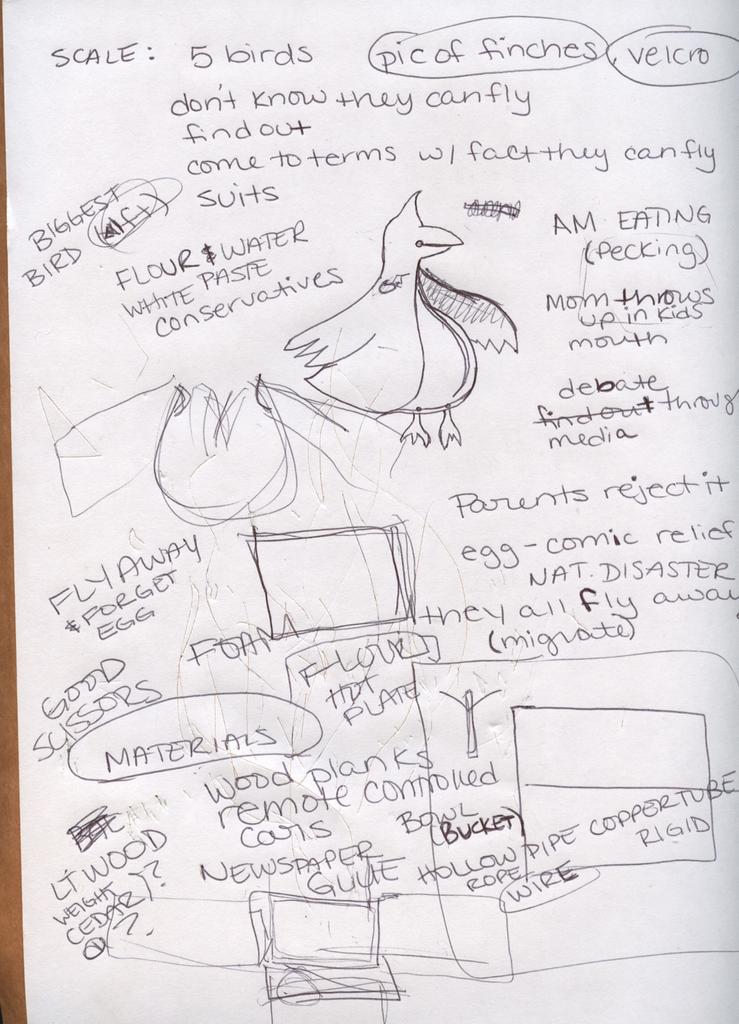 SCALE: 5 birds pic of finches, velcro
don't know they can fly
find out
come to terms w/ fact they can fly
suits
BIGGEST
BIRD
FLOUR & WATER
WHITE PASTE
conservatives
AM EATING
(Pecking)
Mom throws
up in kids
mouth
debate
find out throug
media
Parents reject it
egg - comic relief
NAT. DISASTER
they all fly away
(migrate)
FLY AWAY
& FORGET
EGG
FOAM
FLOUR
HOT
PLATE
GOOD
SCISSORS
MATERIALS
wood planks
remote controlled
cars
NEWSPAPER
GLUE
BOWL
(BUCKET)
HOLLOW PIPE COPPER TUBE
RIGID
ROPE
WIRE
LT WOOD
WEIGHT
CEDAR)?
?